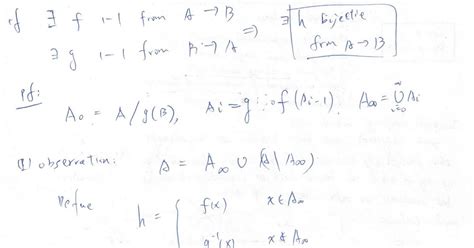 if ∃ f 1-1 from A → B
∃ g 1-1 from B → A ⇒ ∃ h bijective from A → B
Pf:
A₀ = A / g(B), Aᵢ = g∘f(Aᵢ₋₁), A∞ = ⋃ᵢ₌₀^∞ Aᵢ
(1) observation: A = A∞ ∪ (A \ A∞)
Define
h = { f(x) x ∈ A∞
g⁻¹(x) x ∉ A∞